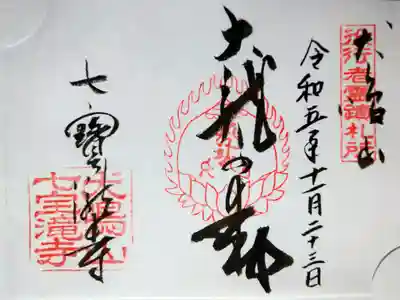 犬鳴山
役行者霊蹟札所
令和五年十一月二十三日
大龍の
七寶瀧寺
犬鳴山
七宝滝寺